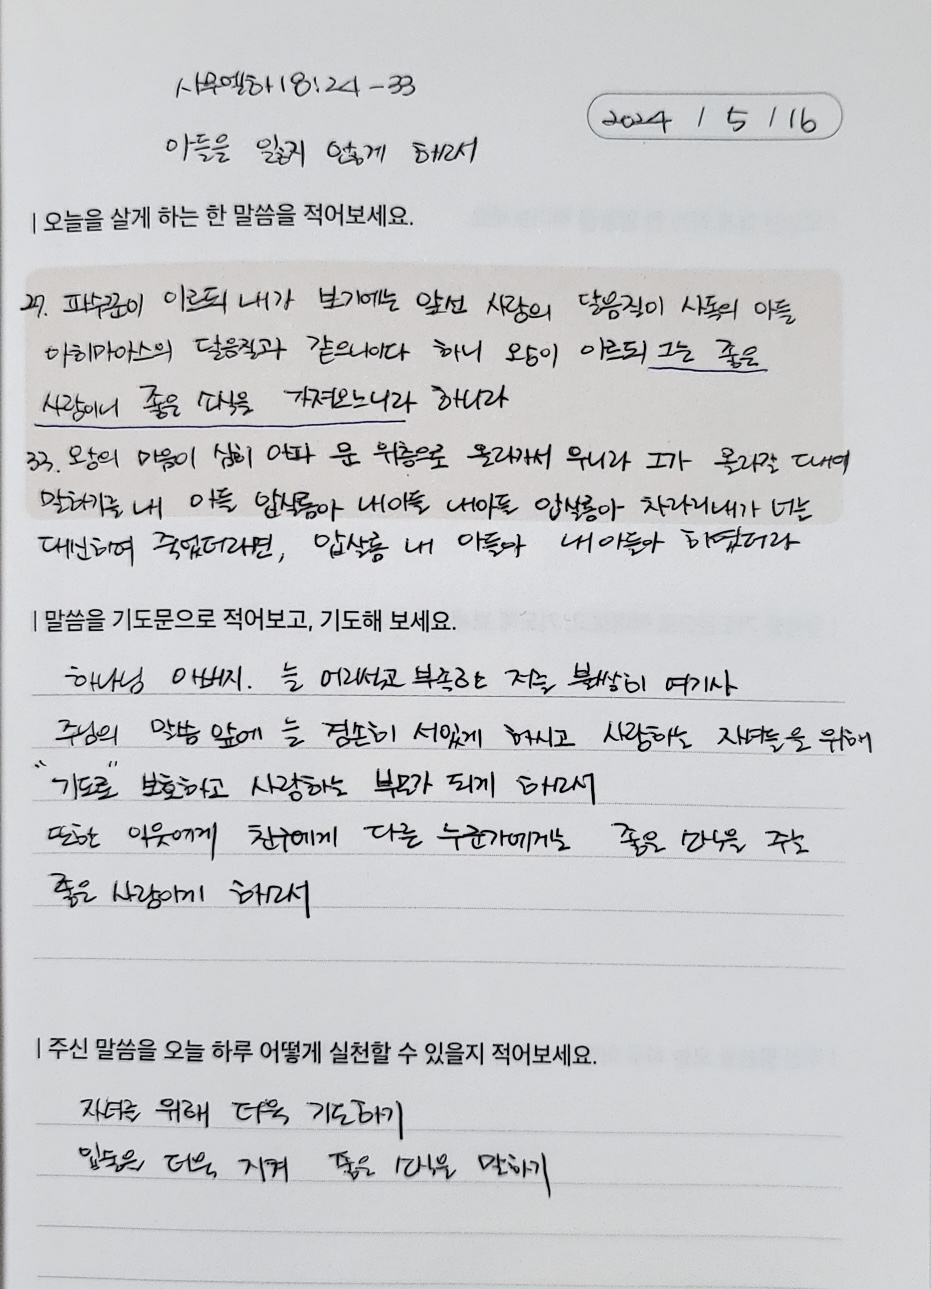 사무엘하 18:24-33
2024 / 5 / 16
아들을 잃지 않게 하소서
| 오늘을 살게 하는 한 말씀을 적어보세요.
27. 파수꾼이 이르되 내가 보기에는 앞선 사람의 달음질이 사독의 아들
아히마아스의 달음질과 같으니이다 하니 왕이 이르되 그는 좋은
사람이니 좋은 소식을 가져오느니라 하니라
33. 왕의 마음이 심히 아파 문 위층으로 올라가서 우니라 그가 올라갈 때에
말하기를 내 아들 압살롬아 내 아들 내 아들 압살롬아 차라리 내가 너를
대신하여 죽었더라면, 압살롬 내 아들아 내 아들아 하였더라
| 말씀을 기도문으로 적어보고, 기도해 보세요.
하나님 아버지. 늘 어리석고 부족한 저를 불쌍히 여기사
주님의 말씀 앞에 늘 겸손히 서있게 하시고 사랑하는 자녀들을 위해
"기도로" 보호하고 사랑하는 부모가 되게 하소서
또한 이웃에게 친구에게 다른 누군가에게는 좋은 소식을 주는
좋은 사람이게 하소서
| 주신 말씀을 오늘 하루 어떻게 실천할 수 있을지 적어보세요.
자녀를 위해 더욱 기도하기
입술을 더욱 지켜 좋은 소식을 말하기